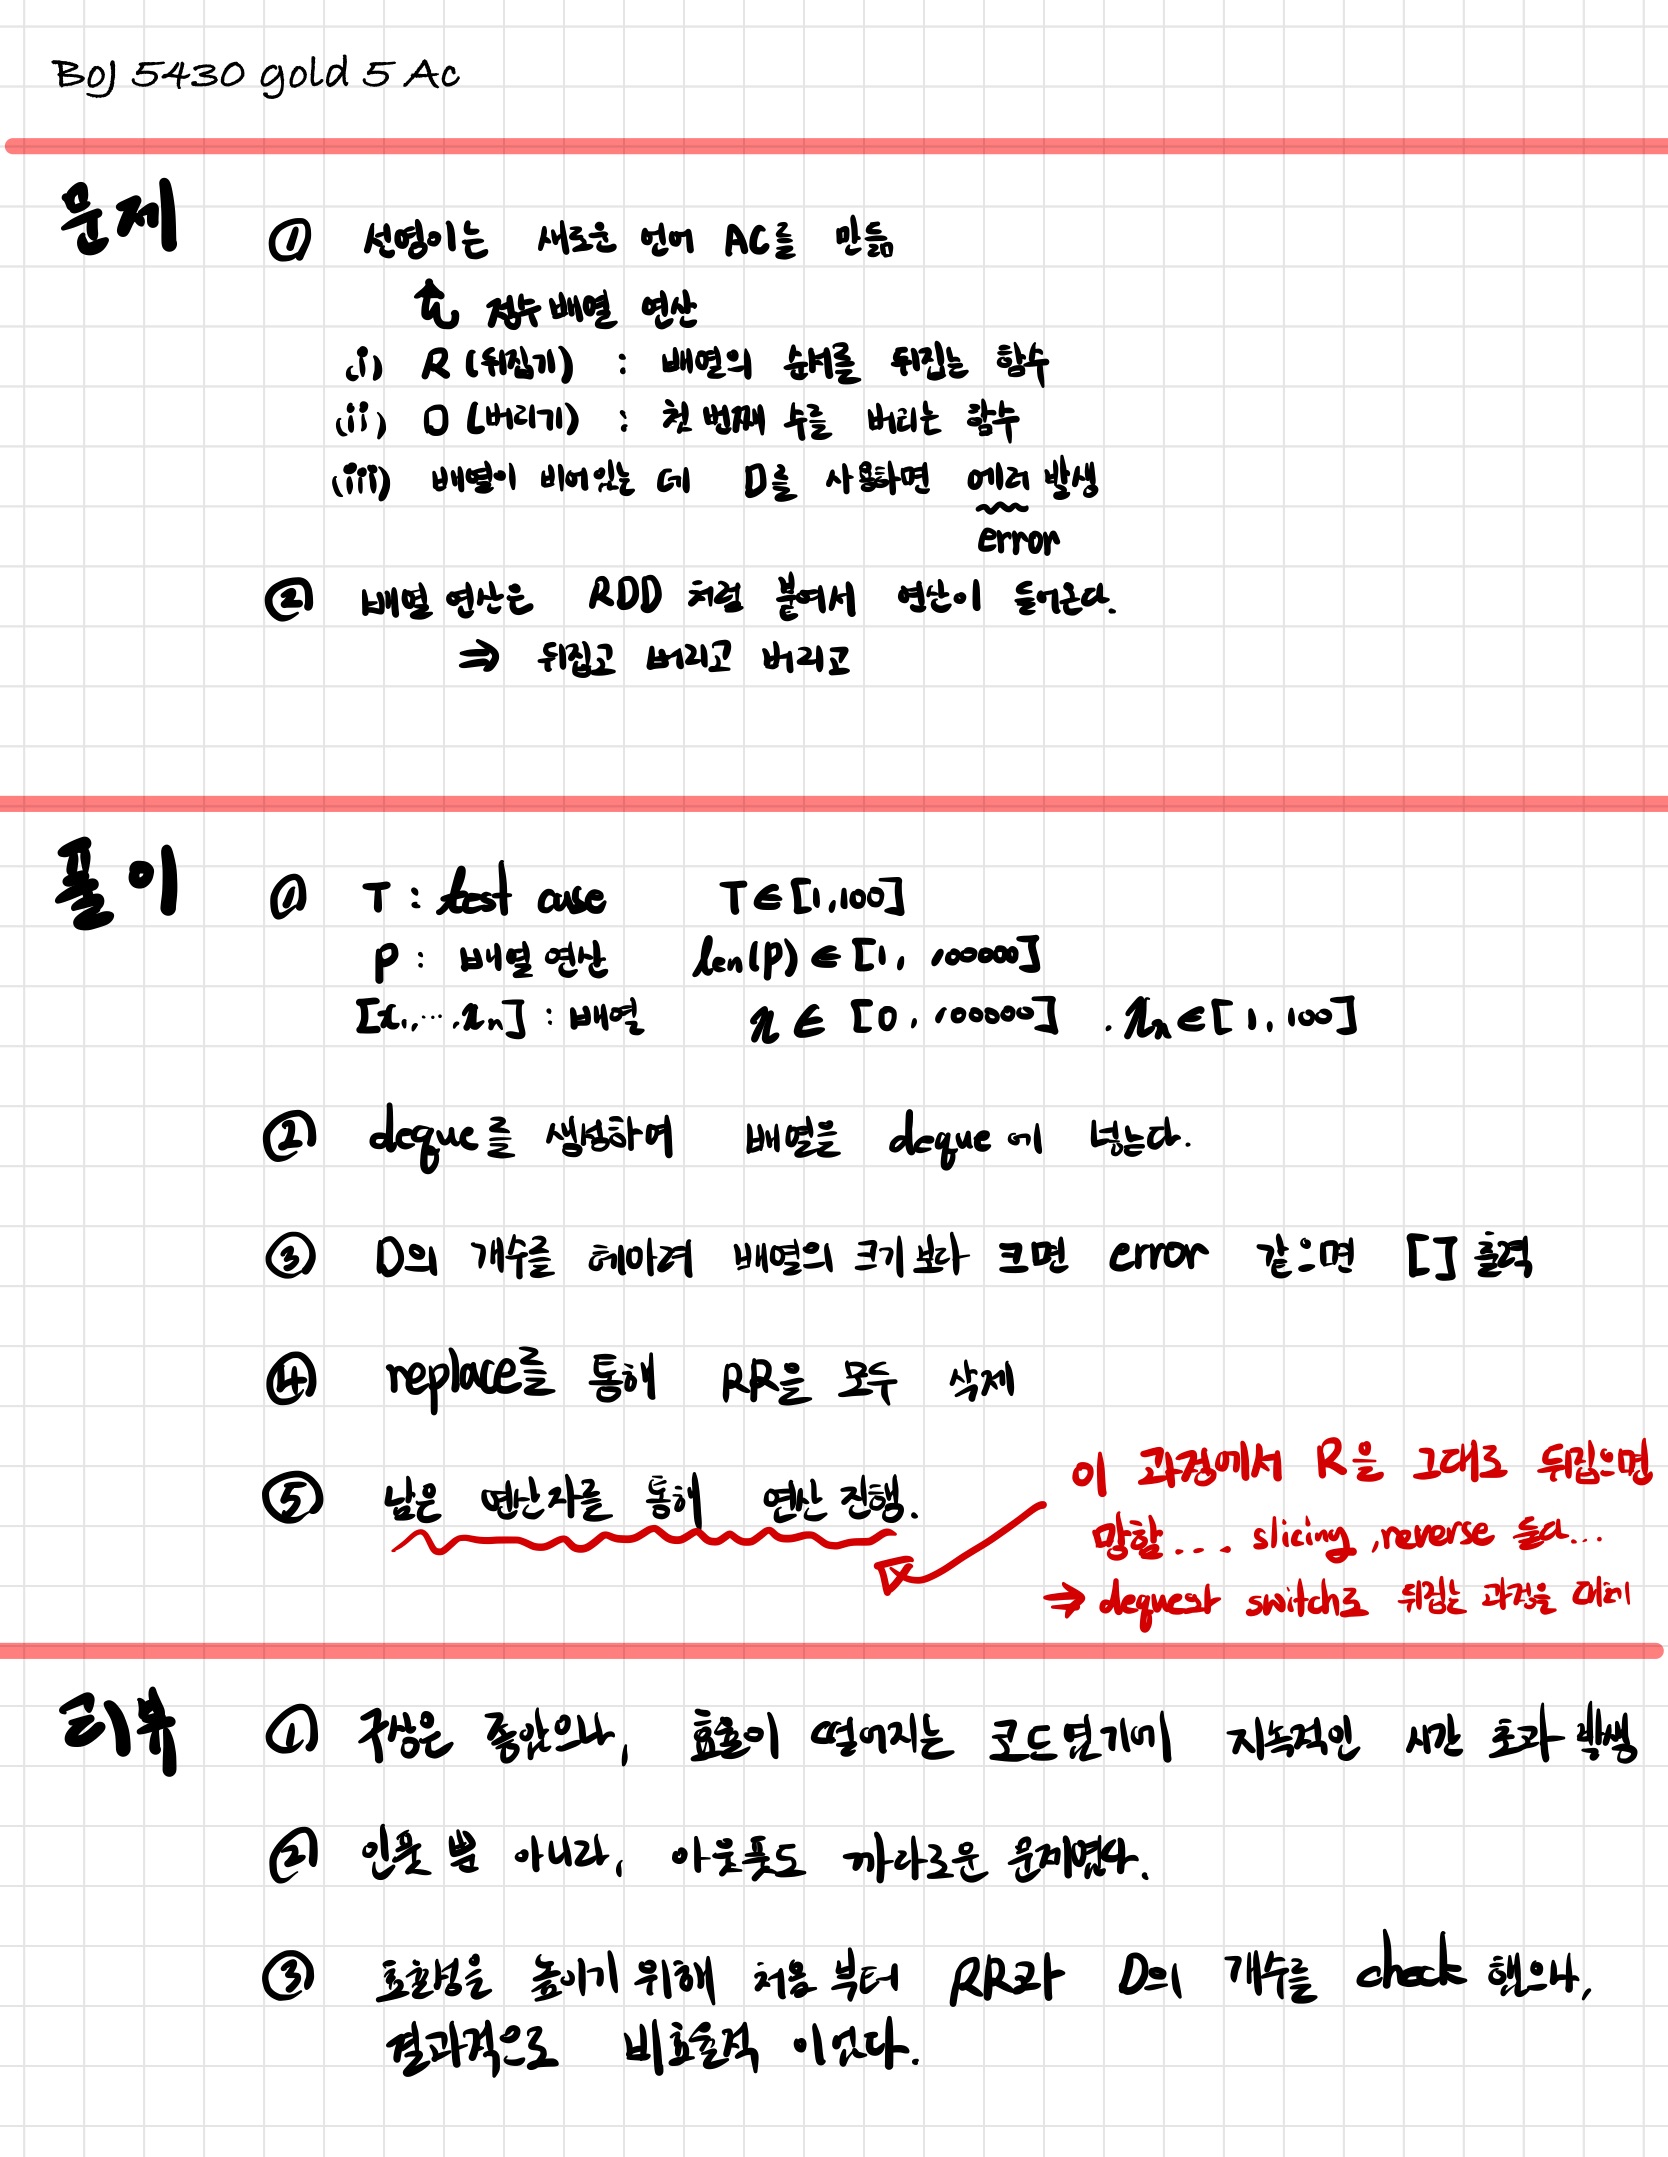 BOJ 5430 gold 5 AC
문제
① 선영이는 새로운 언어 AC를 만듦
정수 배열 연산
(i) R (뒤집기) : 배열의 순서를 뒤집는 함수
(ii) D (버리기) : 첫 번째 수를 버리는 함수
(iii) 배열이 비어있는 데 D를 사용하면 에러 발생
error
② 배열 연산은 RDD 처럼 붙여서 연산이 들어온다.
⇒ 뒤집고 버리고 버리고
풀이
① T : test case T ∈ [1, 100]
P : 배열 연산 len(P) ∈ [1, 100000]
[x₁, ..., xₙ] : 배열 n ∈ [0, 100000] . xₙ ∈ [1, 100]
② deque를 생성하여 배열을 deque에 넣는다.
③ D의 개수를 헤아려 배열의 크기보다 크면 error 같으면 [] 출력
④ replace를 통해 RR을 모두 삭제
⑤ 남은 연산자를 통해 연산 진행.
이 과정에서 R을 그대로 뒤집으면
망함... slicing, reverse 둘다...
⇒ deque와 switch로 뒤집는 과정을 대체
리뷰
① 구상은 좋았으나, 효율이 떨어지는 코드였기에 지속적인 시간 초과 발생
② 인풋 뿐 아니라, 아웃풋도 까다로운 문제였다.
③ 효율성을 높이기 위해 처음 부터 RR과 D의 개수를 check 했으나,
결과적으로 비효율적 이었다.